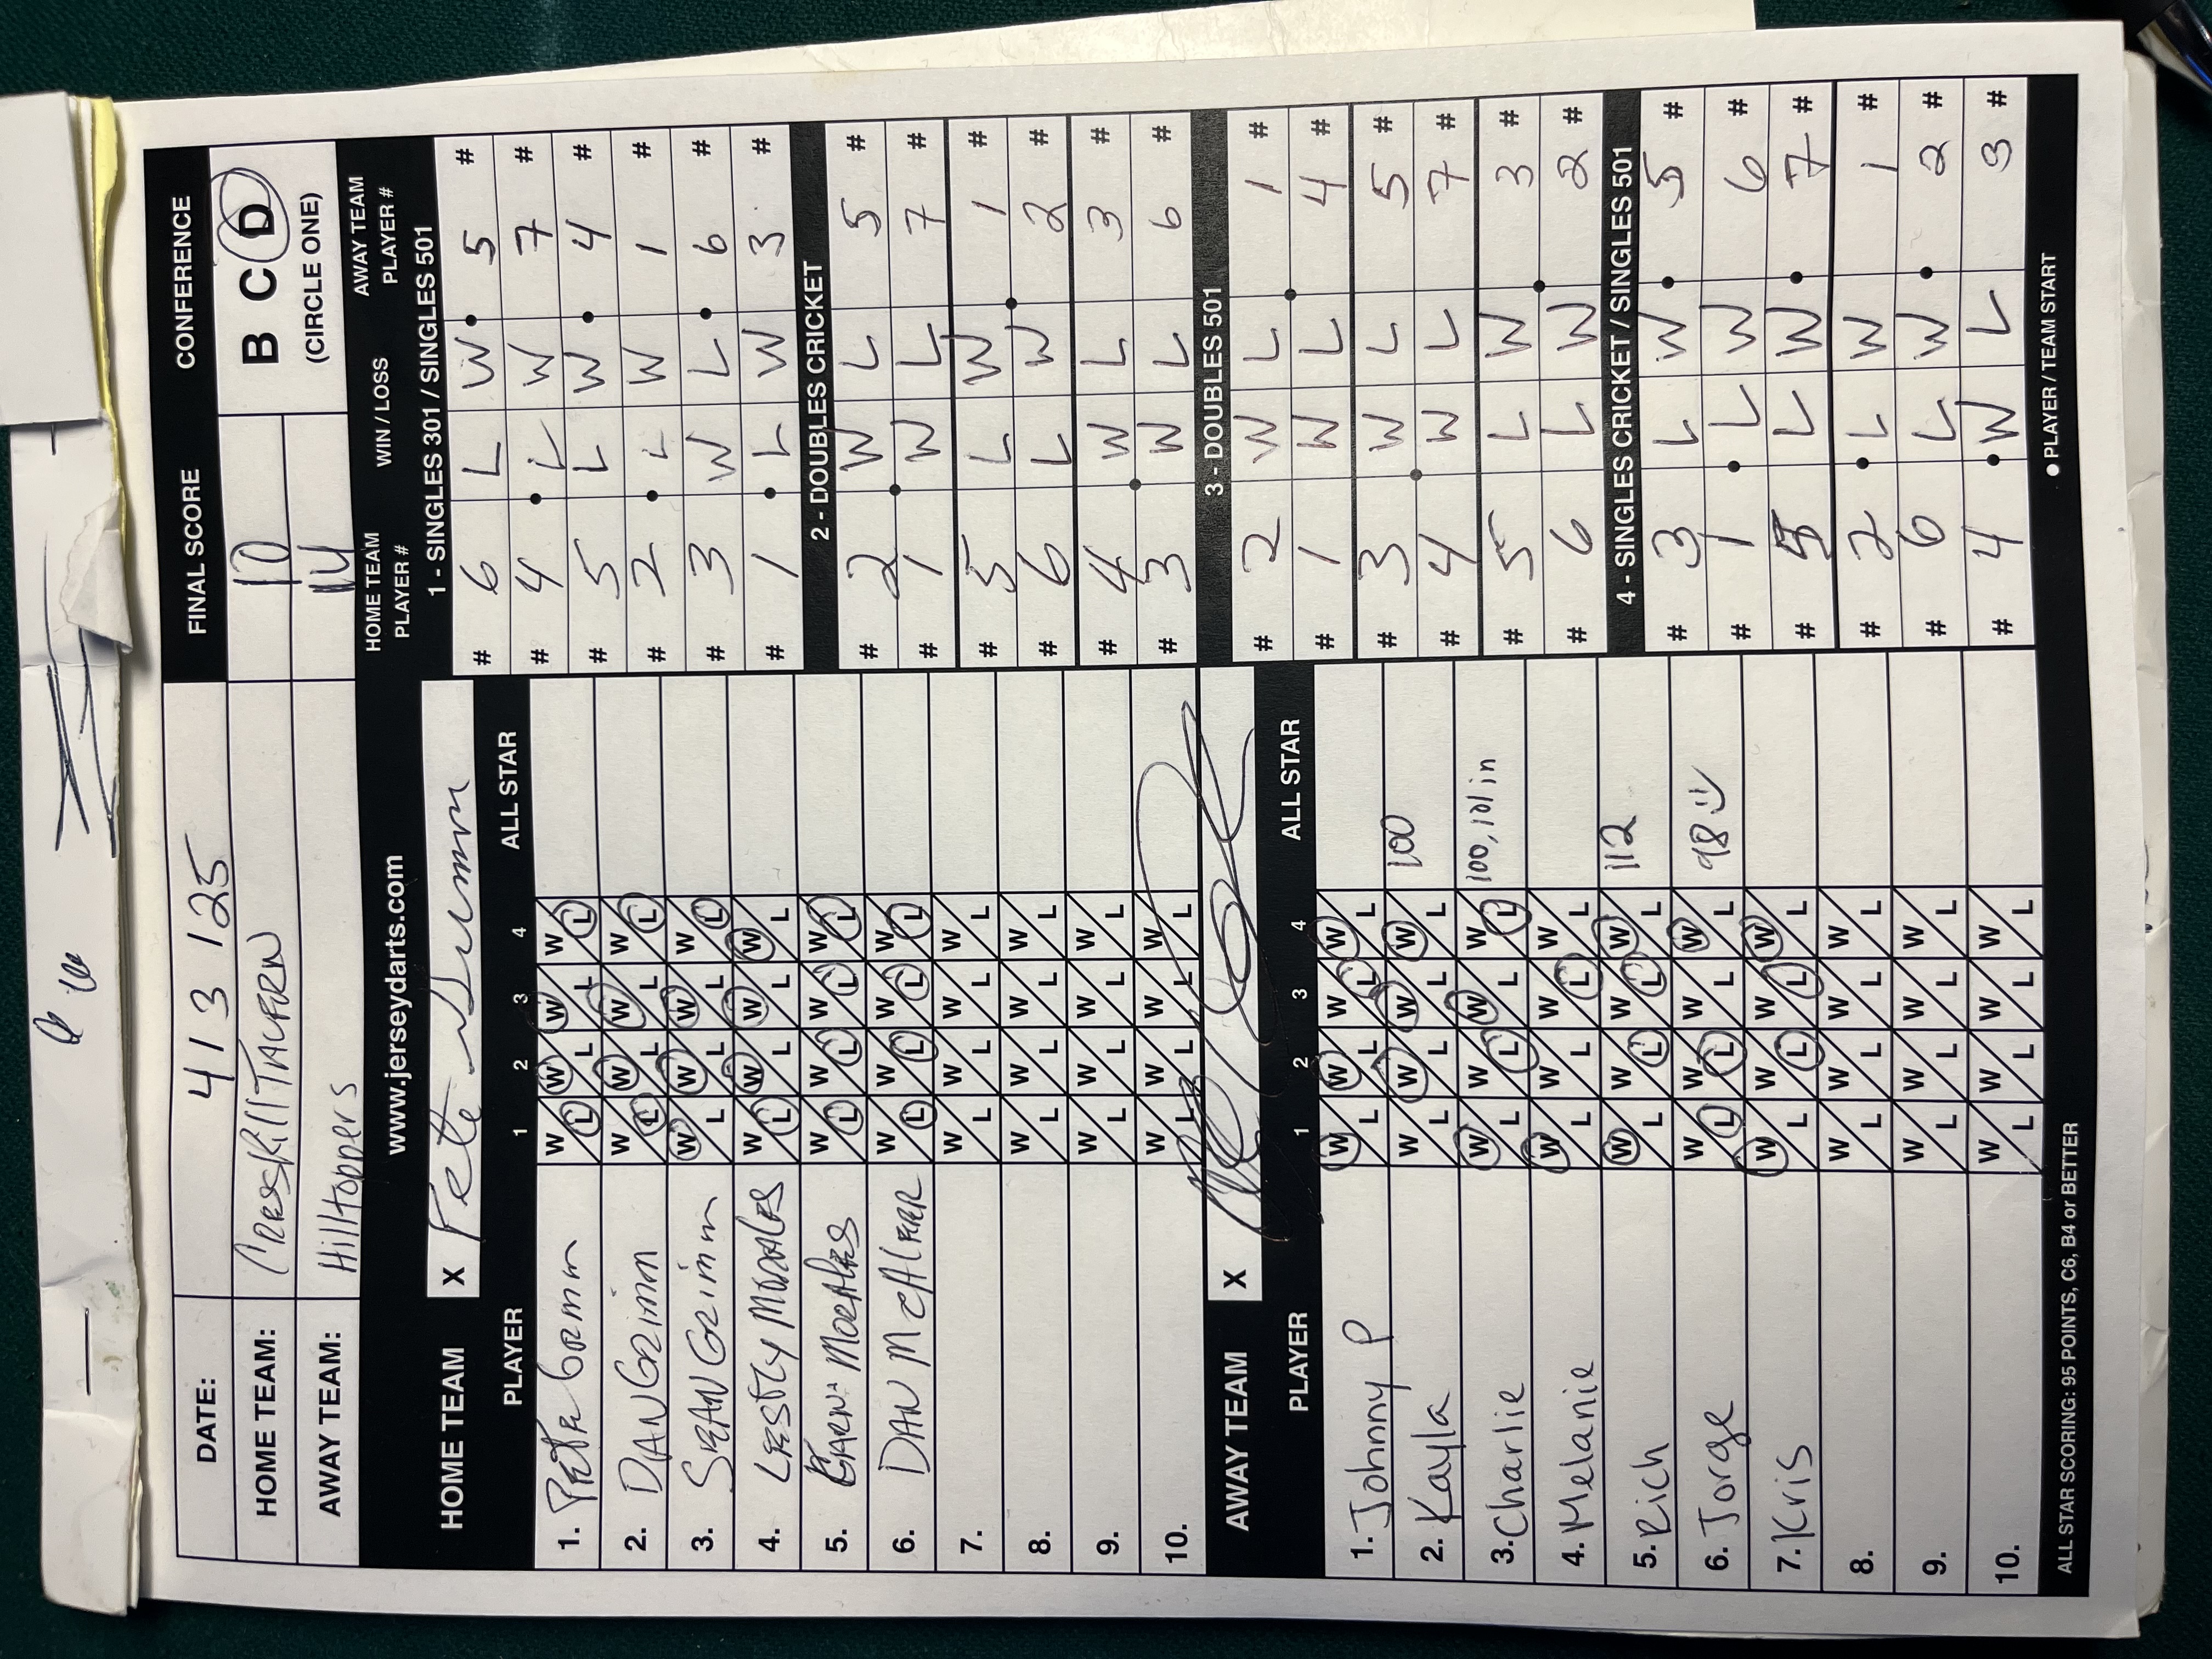 DATE: 4 / 3 / 25 FINAL SCORE CONFERENCE
HOME TEAM: Cresskill Tavern 10 B C D
AWAY TEAM: Hilltoppers 14 (CIRCLE ONE)
www.jerseydarts.com
HOME TEAM X
PLAYER 1 2 3 4 ALL STAR
1. W L W L W L W L
2. DAN GRIMM W L W L W L W L
3. SEAN GRIMM W L W L W L W L
4. LESLY MORALES W L W L W L W L
5. MORALES W L W L W L W L
6. DAN McALEER W L W L W L W L
7. W L W L W L W L
8. W L W L W L W L
9. W L W L W L W L
10. W L W L W L W L
AWAY TEAM X
PLAYER 1 2 3 4 ALL STAR
1. Johnny P W L W L W L W L
2. Kayla W L W L W L W L 100
3. Charlie W L W L W L W L 100, 101 in
4. Melanie W L W L W L W L
5. Rich W L W L W L W L 112
6. Jorge W L W L W L W L 98
7. Kris W L W L W L W L
8. W L W L W L W L
9. W L W L W L W L
10. W L W L W L W L
ALL STAR SCORING: 95 POINTS, C6, B4 or BETTER
HOME TEAM PLAYER # WIN / LOSS AWAY TEAM PLAYER #
1 - SINGLES 301 / SINGLES 501
# 6 L W 5 #
# 4 L W 7 #
# 5 L W 4 #
# 2 L W 1 #
# 3 W L 6 #
# 1 L W 3 #
2 - DOUBLES CRICKET
# 2 W L 5 #
# 1 W L 7 #
# 5 L W 1 #
# 6 L W 2 #
# 4 W L 3 #
# 3 W L 6 #
3 - DOUBLES 501
# 2 W L 1 #
# 1 W L 4 #
# 3 W L 5 #
# 4 W L 7 #
# 5 L W 3 #
# 6 L W 2 #
4 - SINGLES CRICKET / SINGLES 501
# 3 L W 5 #
# 1 L W 6 #
# 5 L W 7 #
# 2 L W 1 #
# 6 L W 2 #
# 4 W L 3 #
● PLAYER / TEAM START